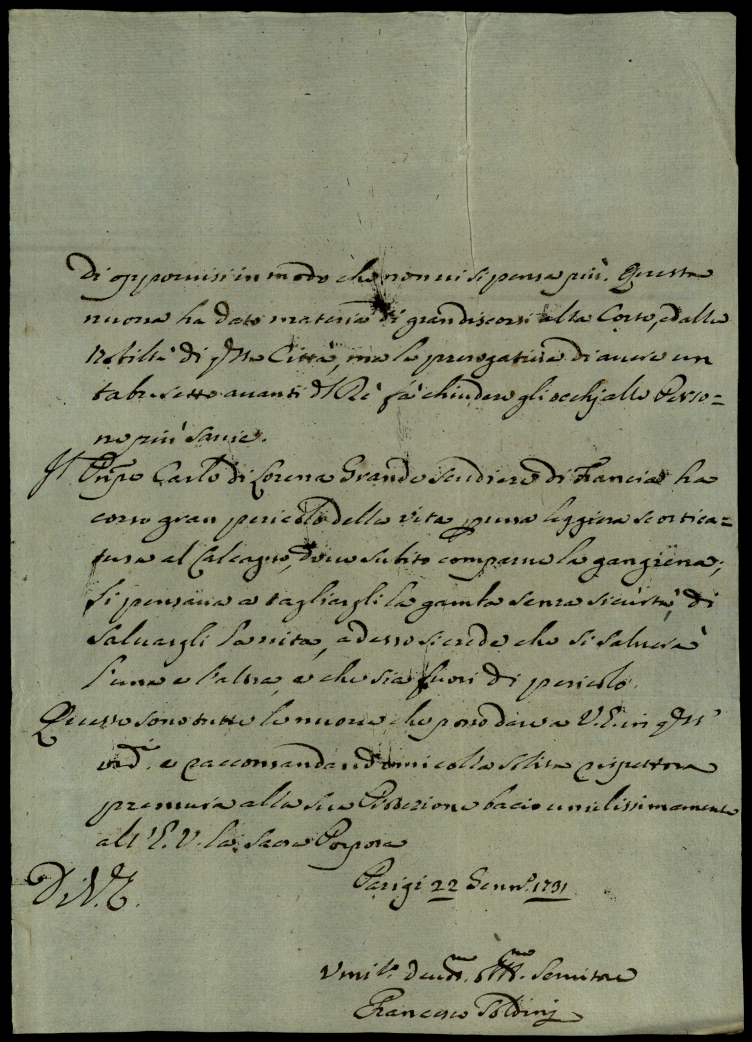 di opporuisi in modo che non ui si pensa più. Questa
nuoua ha dato materia di gran discorsi alla Corte, e dalla
Nobiltà di q.sta Città, ma la prerogatiua di auere un
taburetto auanti il Rè fà chiudere gli occhj alle Perso=
ne più sauie.
Il Prñpe Carlo di Lorena Grande Scudiere di Francia ha
corso gran pericolo della vita p una leggiera scortica=
tura al Calcagno, doue subito comparue la gangrena;
si pensaua a tagliargli la gamba senza sicurtà di
saluargli la vita, adesso si crede che si saluerà
l'una e l'altra, e che sia fuori di pericolo.
Queste sono tutte le nuoue che posso dare a V.E. in q.sto
ord.o e raccomandandomi colla solita rispettosa
premura alla sua Protezione bacio umilissimamente
all'E.V. la sacra Porpora
Parigi 22 Genn.o 1731
Di V.E.
Vmil.o Deuot.mo Obb.mo Seruitore
Francesco Soldinj